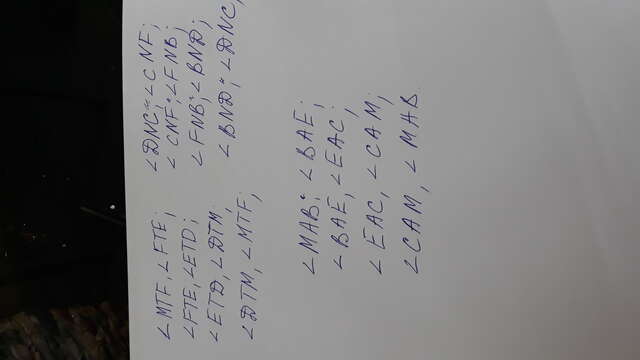 ∠MTF, ∠FTE;
∠FTE, ∠ETD;
∠ETD, ∠DTM;
∠DTM, ∠MTF;
∠DNC и ∠CNF;
∠CNF и ∠FNB;
∠FNB и ∠BND;
∠BND и ∠DNC,
∠MAB и ∠BAE;
∠BAE, ∠EAC;
∠EAC, ∠CAM;
∠CAM, ∠MAB